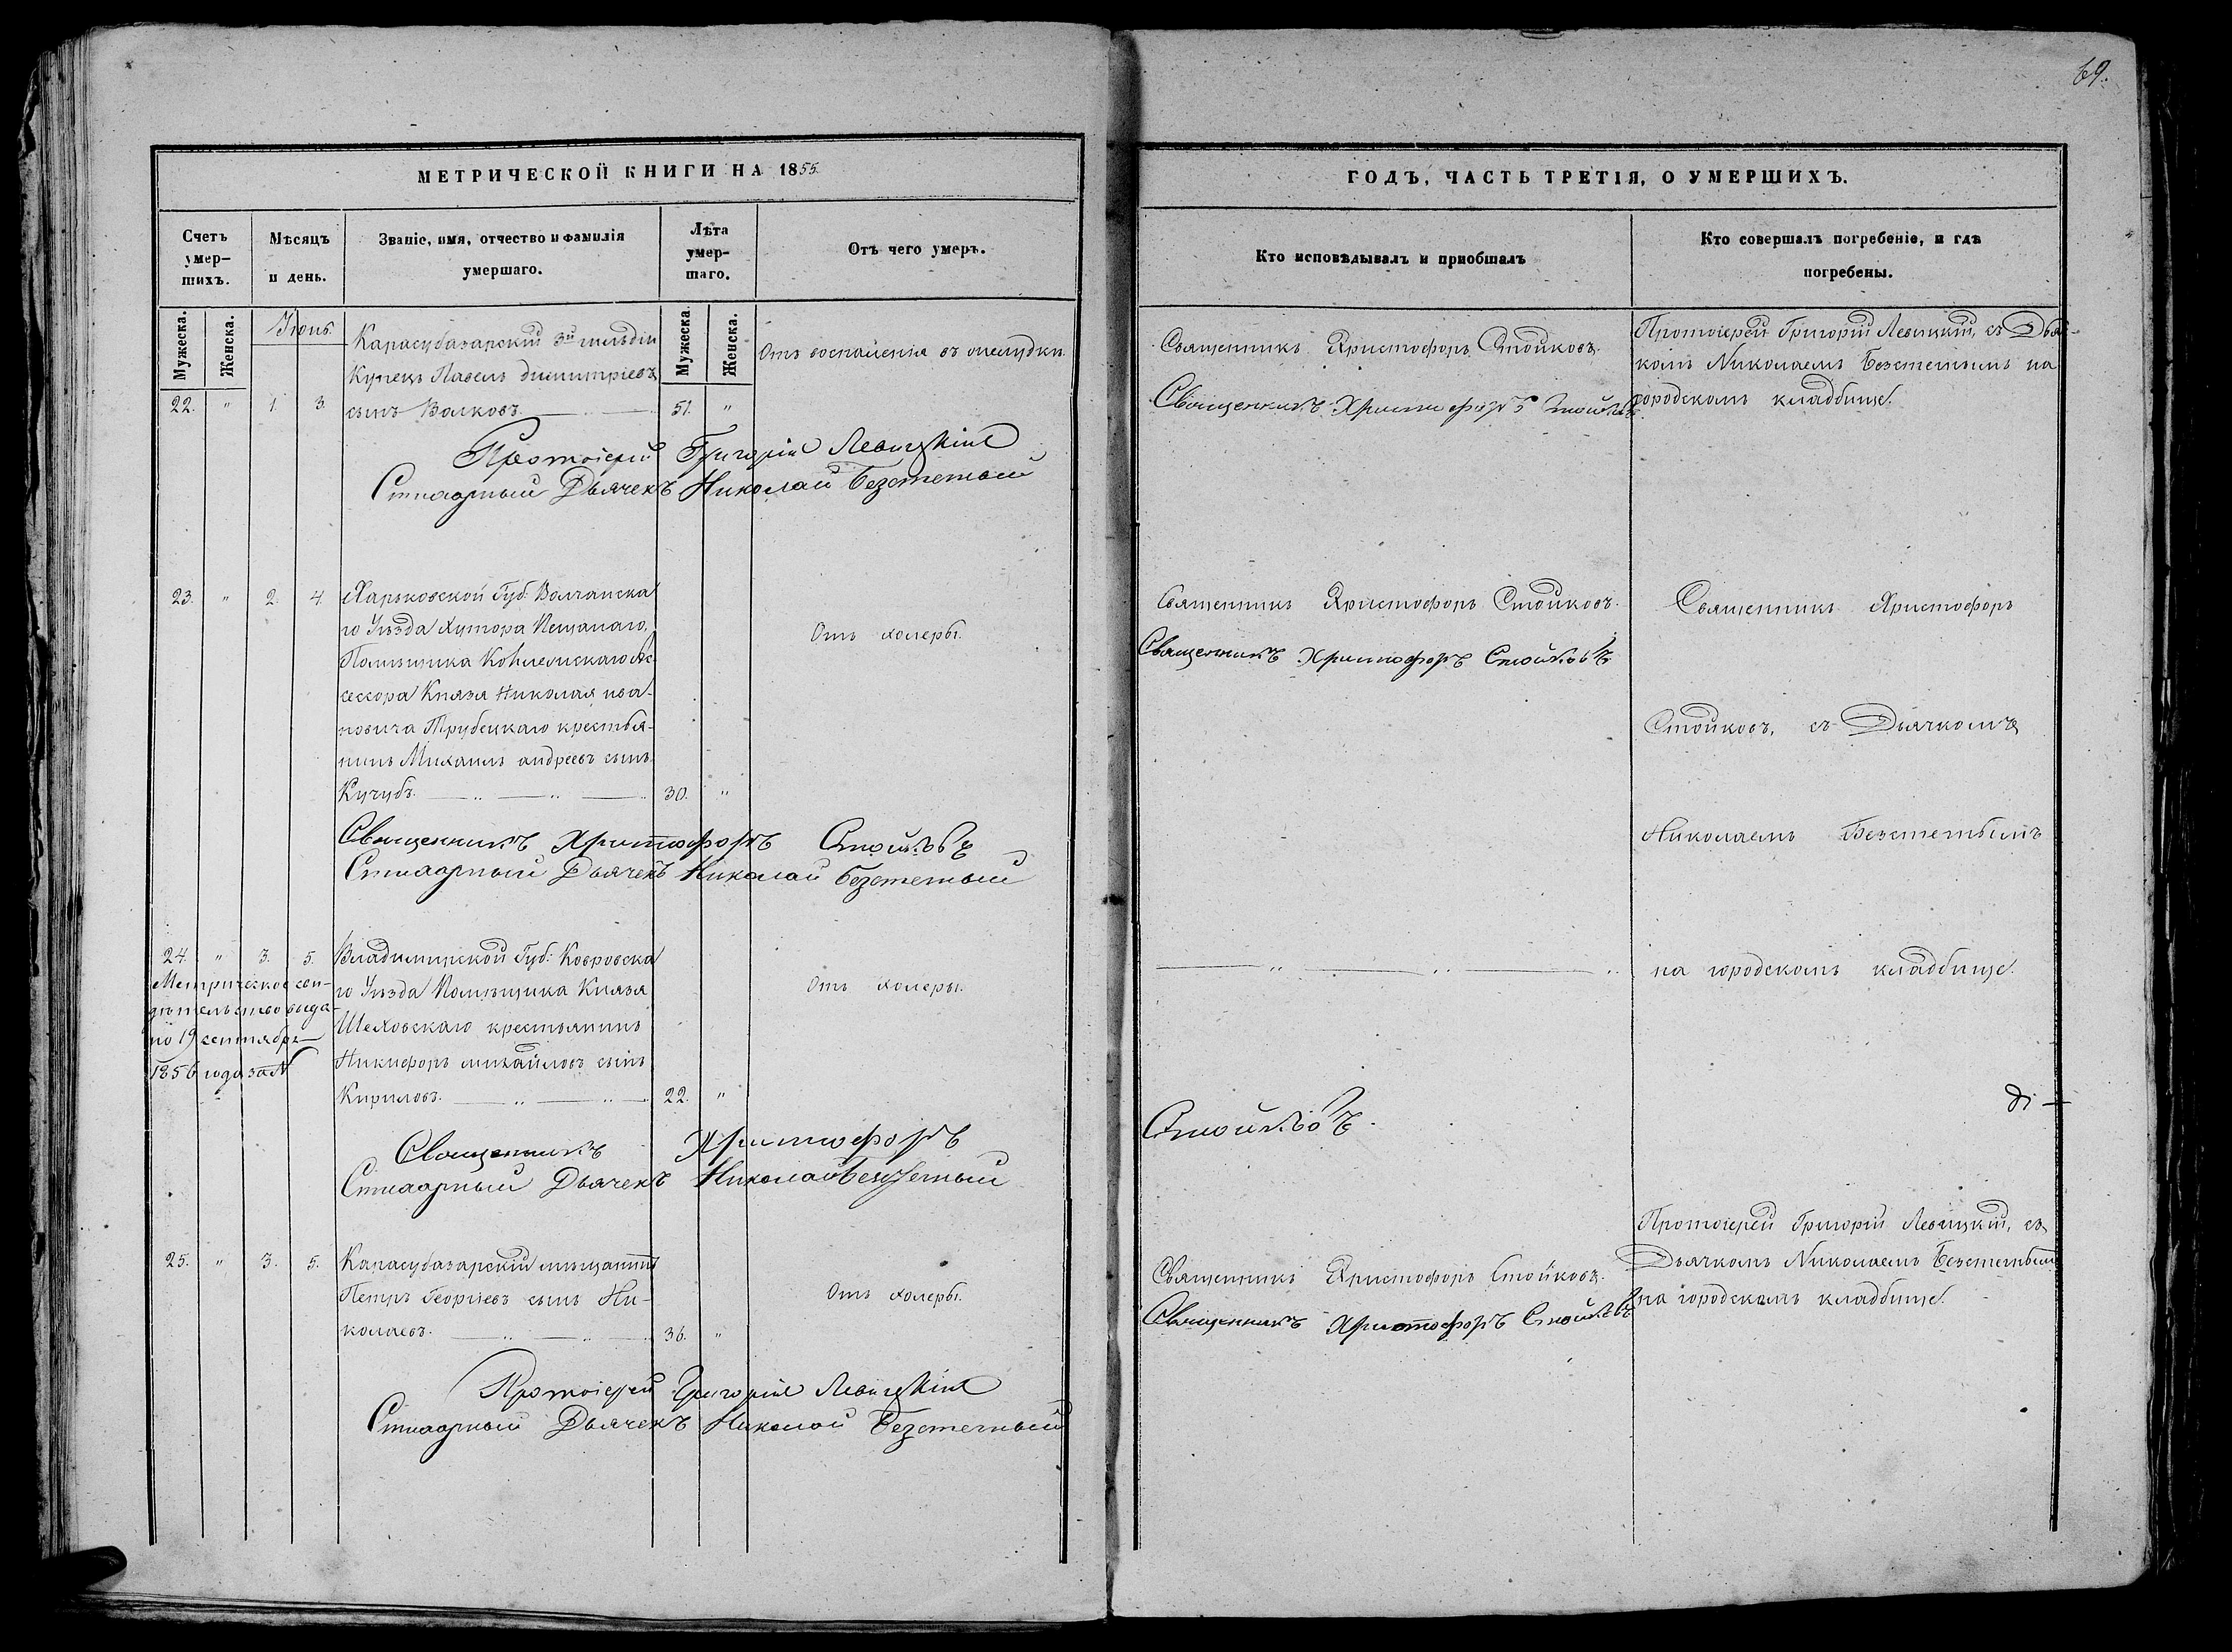 69.
МЕТРИЧЕСКОЙ КНИГИ НА 1855.
Счетъ умер-шихъ.
Мѣсяцъ и день.
Званіе, имя, отчество и фамилія умершаго.
Лѣта умер-шаго.
Отъ чего умеръ.
Мужеска. Женска.
Мужеска. Женска.
Іюнь.
Карасубазарскій 3й гильдіи
Купецъ Павелъ Димитріевъ
22. " 1. 3. сынъ Волковъ. 51. "
Отъ воспаленія въ желудки.
Протоіерей Григорій Левицкій
Стихарный Дьячекъ Николай Безстетный
23. " 2. 4. Харьковской Губ: Волчанска
го Уѣзда Хутора Песчанаго,
Помѣщика Коллежскаго Ас-
сессора Князя Николая ива-
новича Трубецкаго крестья-
нинъ Михаилъ андреевъ сынъ
Кучубъ. 30. "
Отъ холеры.
Священникъ Христофоръ Стойковъ
Стихарный Дьячекъ Николай Безстетный
24. " 3. 5. Владимирской Губ: Ковровска
го Уѣзда Помѣщика Князя
Шеховскаго крестьянинъ
Никифоръ михайловъ сынъ
Кириловъ. 22. "
Отъ холеры.
Метрическое сви-
дѣтельство выда-
но 19 сентября
1856 года за №
Священникъ Христофоръ
Стихарный Дьячекъ Николай Безстетный
25. " 3. 5. Карасубазарскій мѣщанинъ
Петръ Георгіевъ сынъ Ни-
колаевъ. 36. "
Отъ холеры.
Протоіерей Григорій Левицкій
Стихарный Дьячекъ Николай Безстетный
ГОДЪ, ЧАСТЬ ТРЕТІЯ, О УМЕРШИХЪ.
Кто исповѣдывалъ и пріобщалъ
Кто совершалъ погребеніе, и гдѣ погребены.
Священникъ Христофоръ Стойковъ.
Священникъ Христофоръ Стойковъ
Протоіерей Григорій Левицкій, съ Дьяч-
комъ Николаемъ Безстетнымъ на
городскомъ кладбище.
Священникъ Христофоръ Стойковъ.
Священникъ Христофоръ Стойковъ
Священникъ Христофоръ
Стойковъ, съ Дьячкомъ
Николаемъ Безстетнымъ
на городскомъ кладбище.
Стойковъ.
Священникъ Христофоръ Стойковъ.
Священникъ Христофоръ Стойковъ
Протоіерей Григорій Левицкій, съ
Дьячкомъ Николаемъ Безстетнымъ
на городскомъ кладбище.